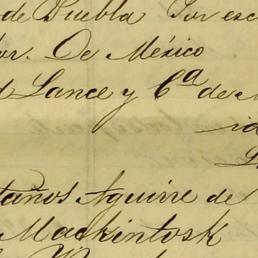 de Puebla Por esc
or. De México
d Lance y Cª de M
id
taños Aguirre de
Mackintosk